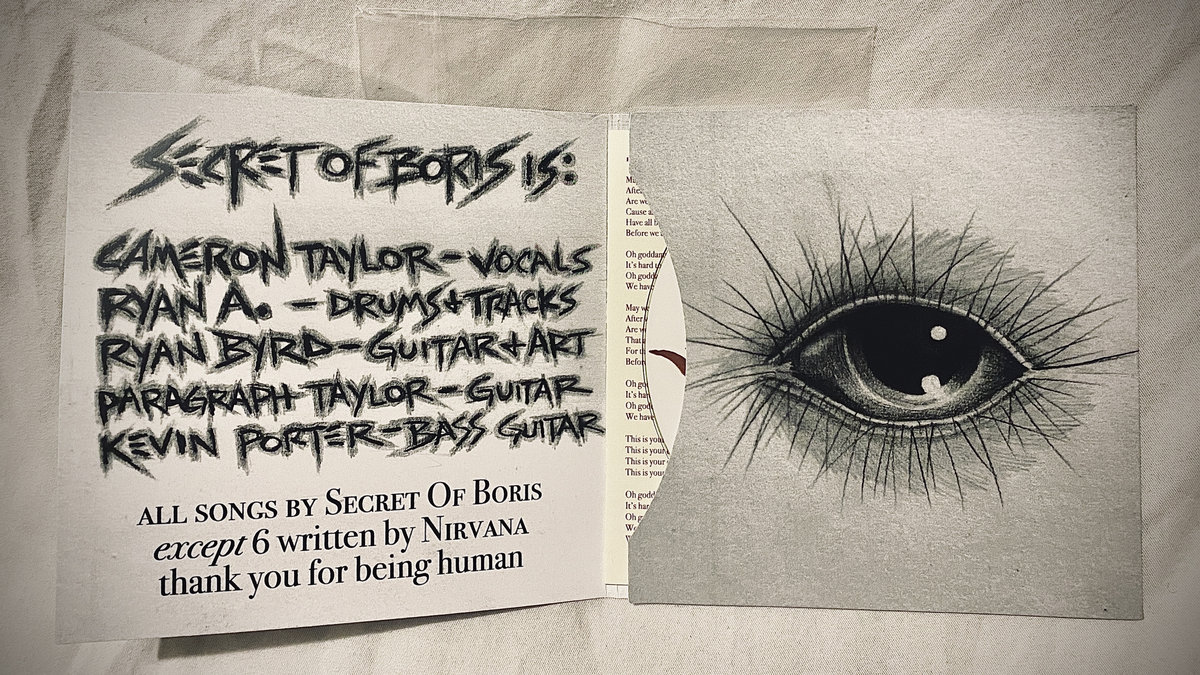 SECRET OF BORIS IS:
CAMERON TAYLOR - VOCALS
RYAN A. - DRUMS + TRACKS
RYAN BYRD - GUITAR + ART
PARAGRAPH TAYLOR - GUITAR
KEVIN PORTER - BASS GUITAR
ALL SONGS BY SECRET OF BORIS
except 6 written by NIRVANA
thank you for being human
After
Are we
Cause a
Have all b
Before we
Oh goddam
It's hard to
Oh godd
We have
May we
After
Are w
That
For th
Befor
Oh go
It's ha
Oh god
We have
This is you
This is your
This is your
This is you
Oh godd
It's har
Oh g
We